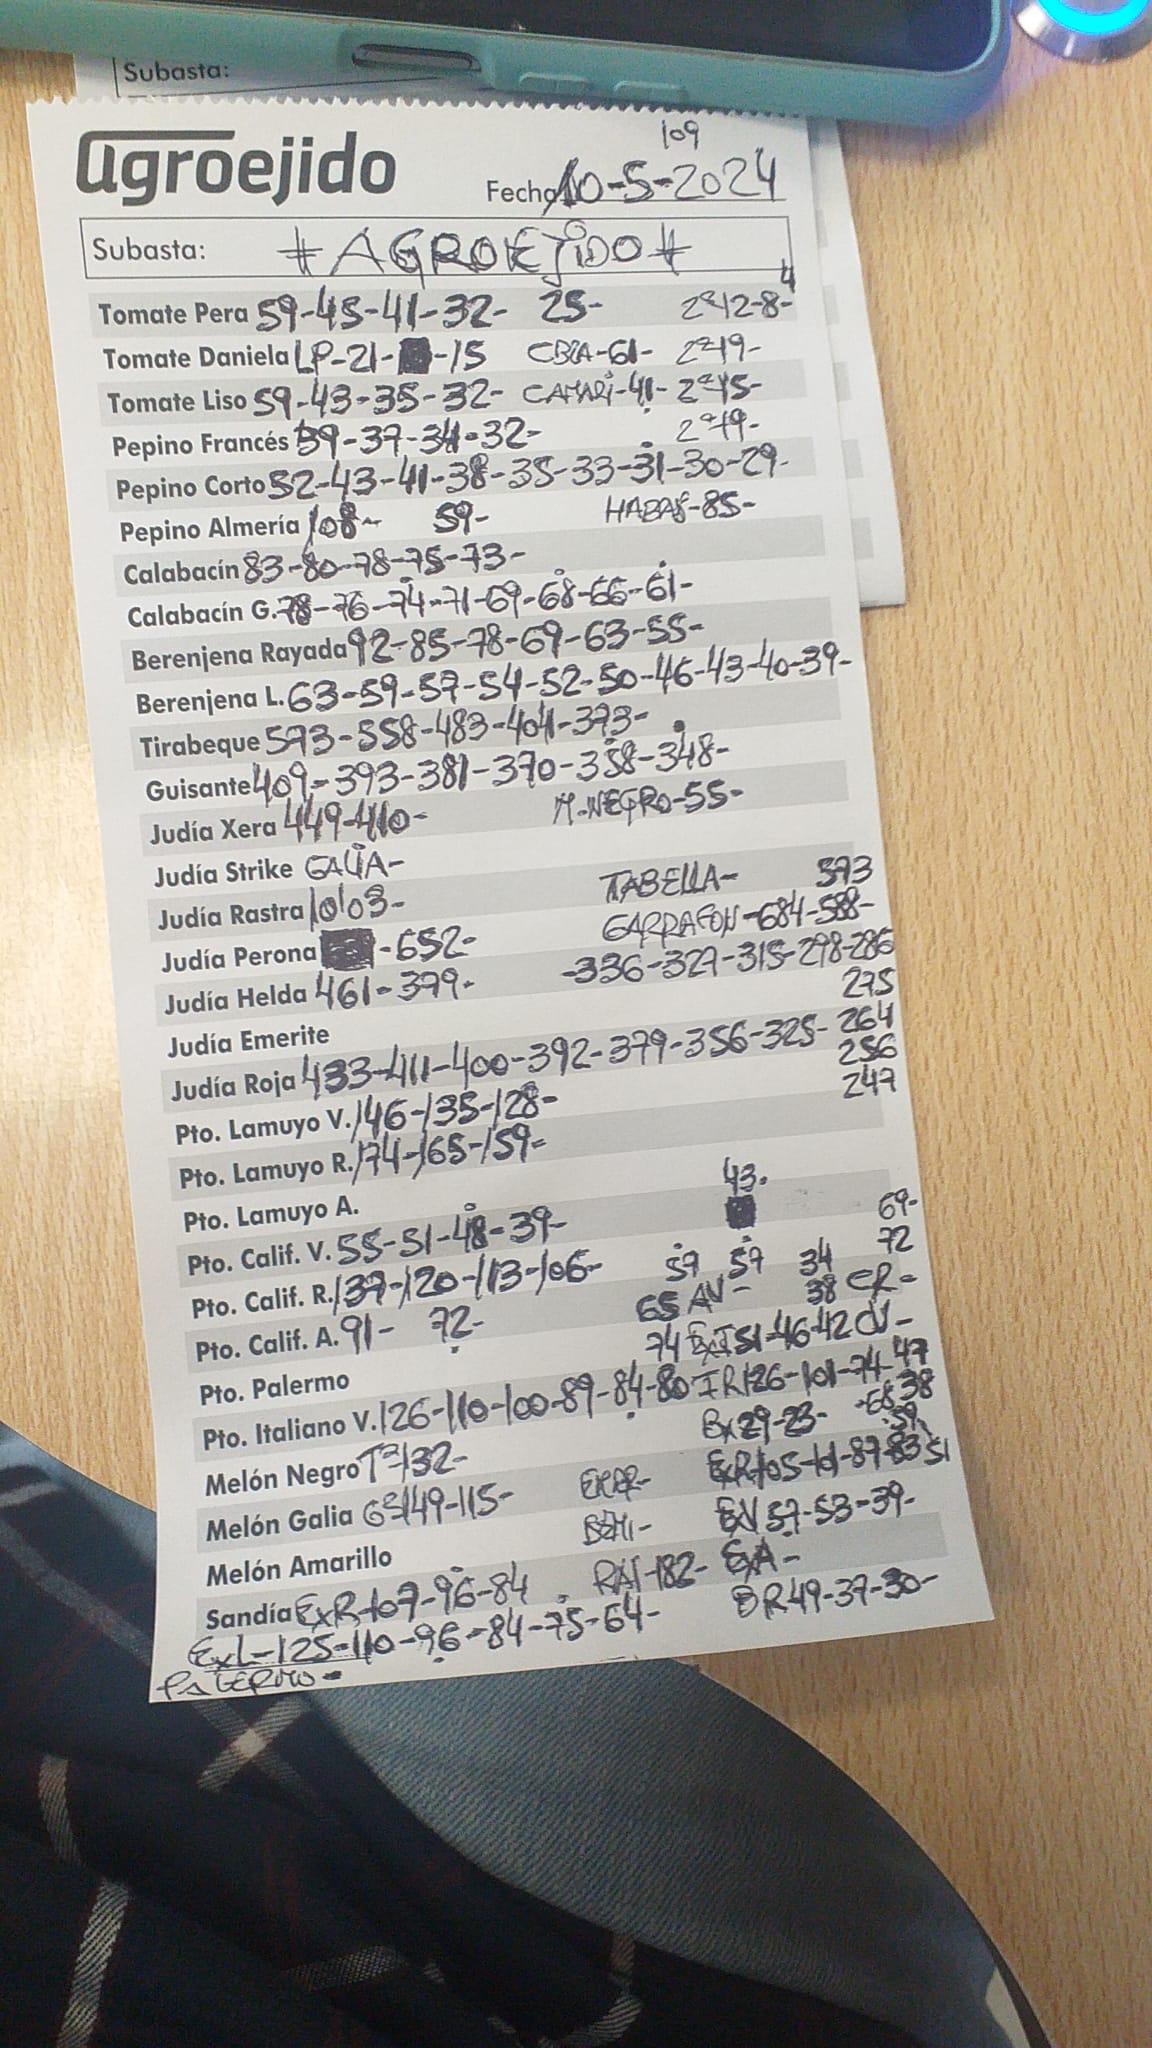 Subasta:
agroejido
109
Fecha 10-5-2024
Subasta: #AGROEJIDO#
4
Tomate Pera 59-45-41-32- 25- 2ª12-8-
Tomate Daniela LP-21- -15 CBRA-61- 2ª19-
Tomate Liso 59-43-35-32- CAMARI-41- 2ª15-
Pepino Francés 39-37-34-32- 2ª19-
Pepino Corto 52-43-41-38-35-33-31-30-29-
Pepino Almería 108- 59- HABAS-85-
Calabacín 83-80-78-75-73-
Calabacín G. 78-76-74-71-69-68-66-61-
Berenjena Rayada 92-85-78-69-63-55-
Berenjena L. 63-59-57-54-52-50-46-43-40-39-
Tirabeque 573-558-483-404-373-
Guisante 409-393-381-370-358-348-
Judía Xera 449-410- M-NEGRO-55-
Judía Strike GALIA-
Judía Rastra 10'03- TABELLA- 573
Judía Perona -652- GARRAFON-684-588-
Judía Helda 461-379- -336-327-315-298-286
275
Judía Emerite
Judía Roja 433-411-400-392-379-356-325- 264
256
Pto. Lamuyo V. 146-135-128- 247
Pto. Lamuyo R. 174-165-159-
Pto. Lamuyo A. 43-
Pto. Calif. V. 55-51-48-39- 69-
Pto. Calif. R. 137-120-113-106- 57 57 34 72
Pto. Calif. A. 91- 72- 65 AV- 38 CR-
Pto. Palermo 74 51-46-42 CV-
Pto. Italiano V. 126-110-100-89-84-80 IR126-101-74-47
-68-38
Melón Negro Tª132- Bx29-23- 59
Melón Galia Gª149-115- ExR105-101-87-83 51
BEMI- EXV 57-53-39-
Melón Amarillo
Sandía ExR-107-96-84 RAY-182- ExA-
ExL-125-110-96-84-75-64- BR49-37-30-
PALERMO-